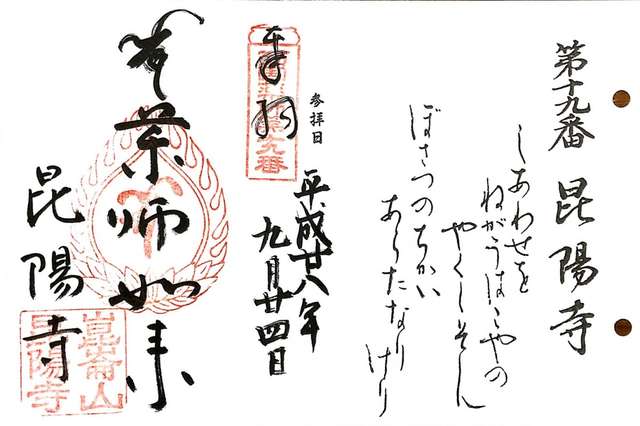 第十九番 昆陽寺
しあわせを
ねがうはこやの
やくしそん
ぼさつのちかい
あらたなり
けり
参拝日
平成廿八年
九月廿四日
奉拝
薬師如来
昆陽寺
崑崙山
昆陽寺